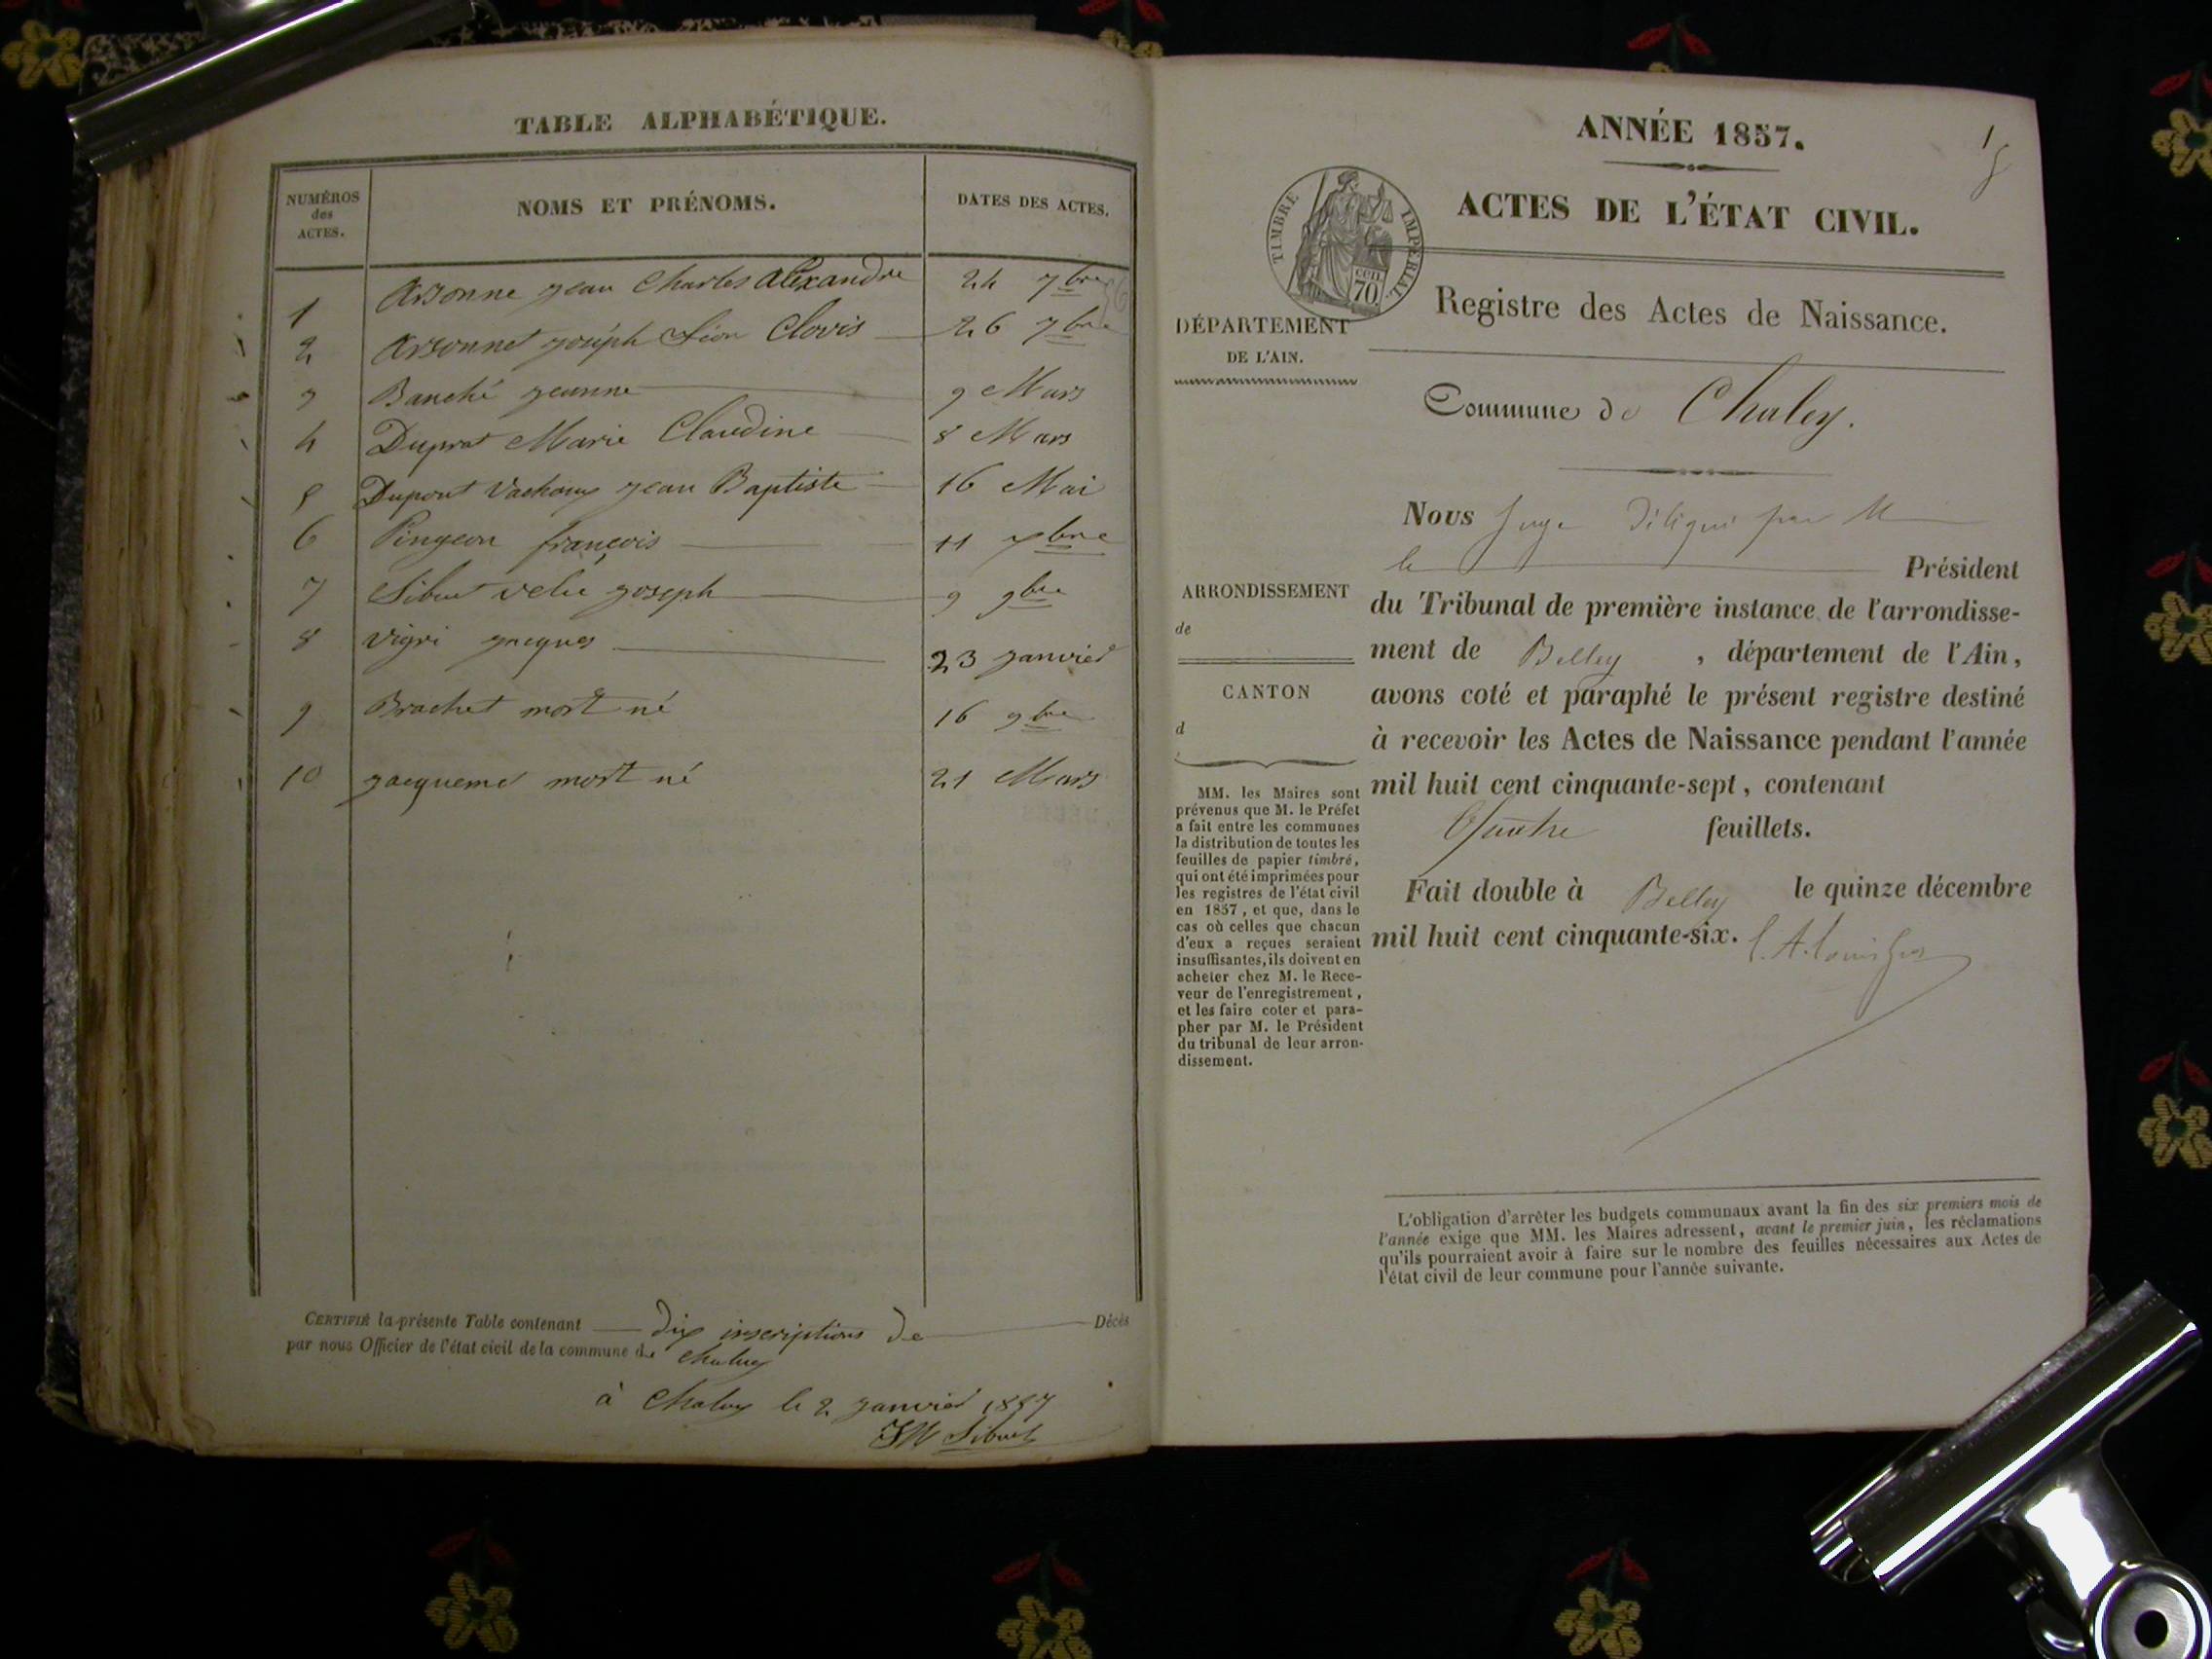 TABLE ALPHABÉTIQUE.
NUMÉROS
des
ACTES.
NOMS ET PRÉNOMS.
DATES DES ACTES.
1 Arsonne jean Charles Alexandre 24 7bre
2 Arsonnet joseph Léon Clovis 26 7bre
3 Banché jeanne 9 Mars
4 Duprat Marie Claudine 8 Mars
5 Dupont jean Baptiste 16 Mai
6 Pingeon françois 11
7 Sibuet joseph 9 9bre
8 jacques 23 janvier
9 Brachet mort né 16 9bre
10 jacquemet mort né 21 Mars
CERTIFIÉ la présente Table contenant dix inscriptions de Décès
par nous Officier de l'état civil de la commune de Chaley
à Chaley le 2 janvier 1857
JM Sibuet
1
ANNÉE 1857.
ACTES DE L'ÉTAT CIVIL.
TIMBRE IMPÉRIAL.
CENT.
70
Registre des Actes de Naissance.
DÉPARTEMENT
DE L'AIN.
Commune de Chaley.
Nous Juge délégué par M
le Président
ARRONDISSEMENT
de
CANTON
d
du Tribunal de première instance de l'arrondisse-
ment de Belley , département de l'Ain,
avons coté et paraphé le présent registre destiné
à recevoir les Actes de Naissance pendant l'année
mil huit cent cinquante-sept, contenant
Quatre feuillets.
Fait double à Belley le quinze décembre
mil huit cent cinquante-six.
MM. les Maires sont
prévenus que M. le Préfet
a fait entre les communes
la distribution de toutes les
feuilles de papier timbré,
qui ont été imprimées pour
les registres de l'état civil
en 1857, et que, dans le
cas où celles que chacun
d'eux a reçues seraient
insuffisantes, ils doivent en
acheter chez M. le Rece-
veur de l'enregistrement,
et les faire coter et para-
pher par M. le Président
du tribunal de leur arron-
dissement.
L'obligation d'arrêter les budgets communaux avant la fin des six premiers mois de
l'année exige que MM. les Maires adressent, avant le premier juin, les réclamations
qu'ils pourraient avoir à faire sur le nombre des feuilles nécessaires aux Actes de
l'état civil de leur commune pour l'année suivante.